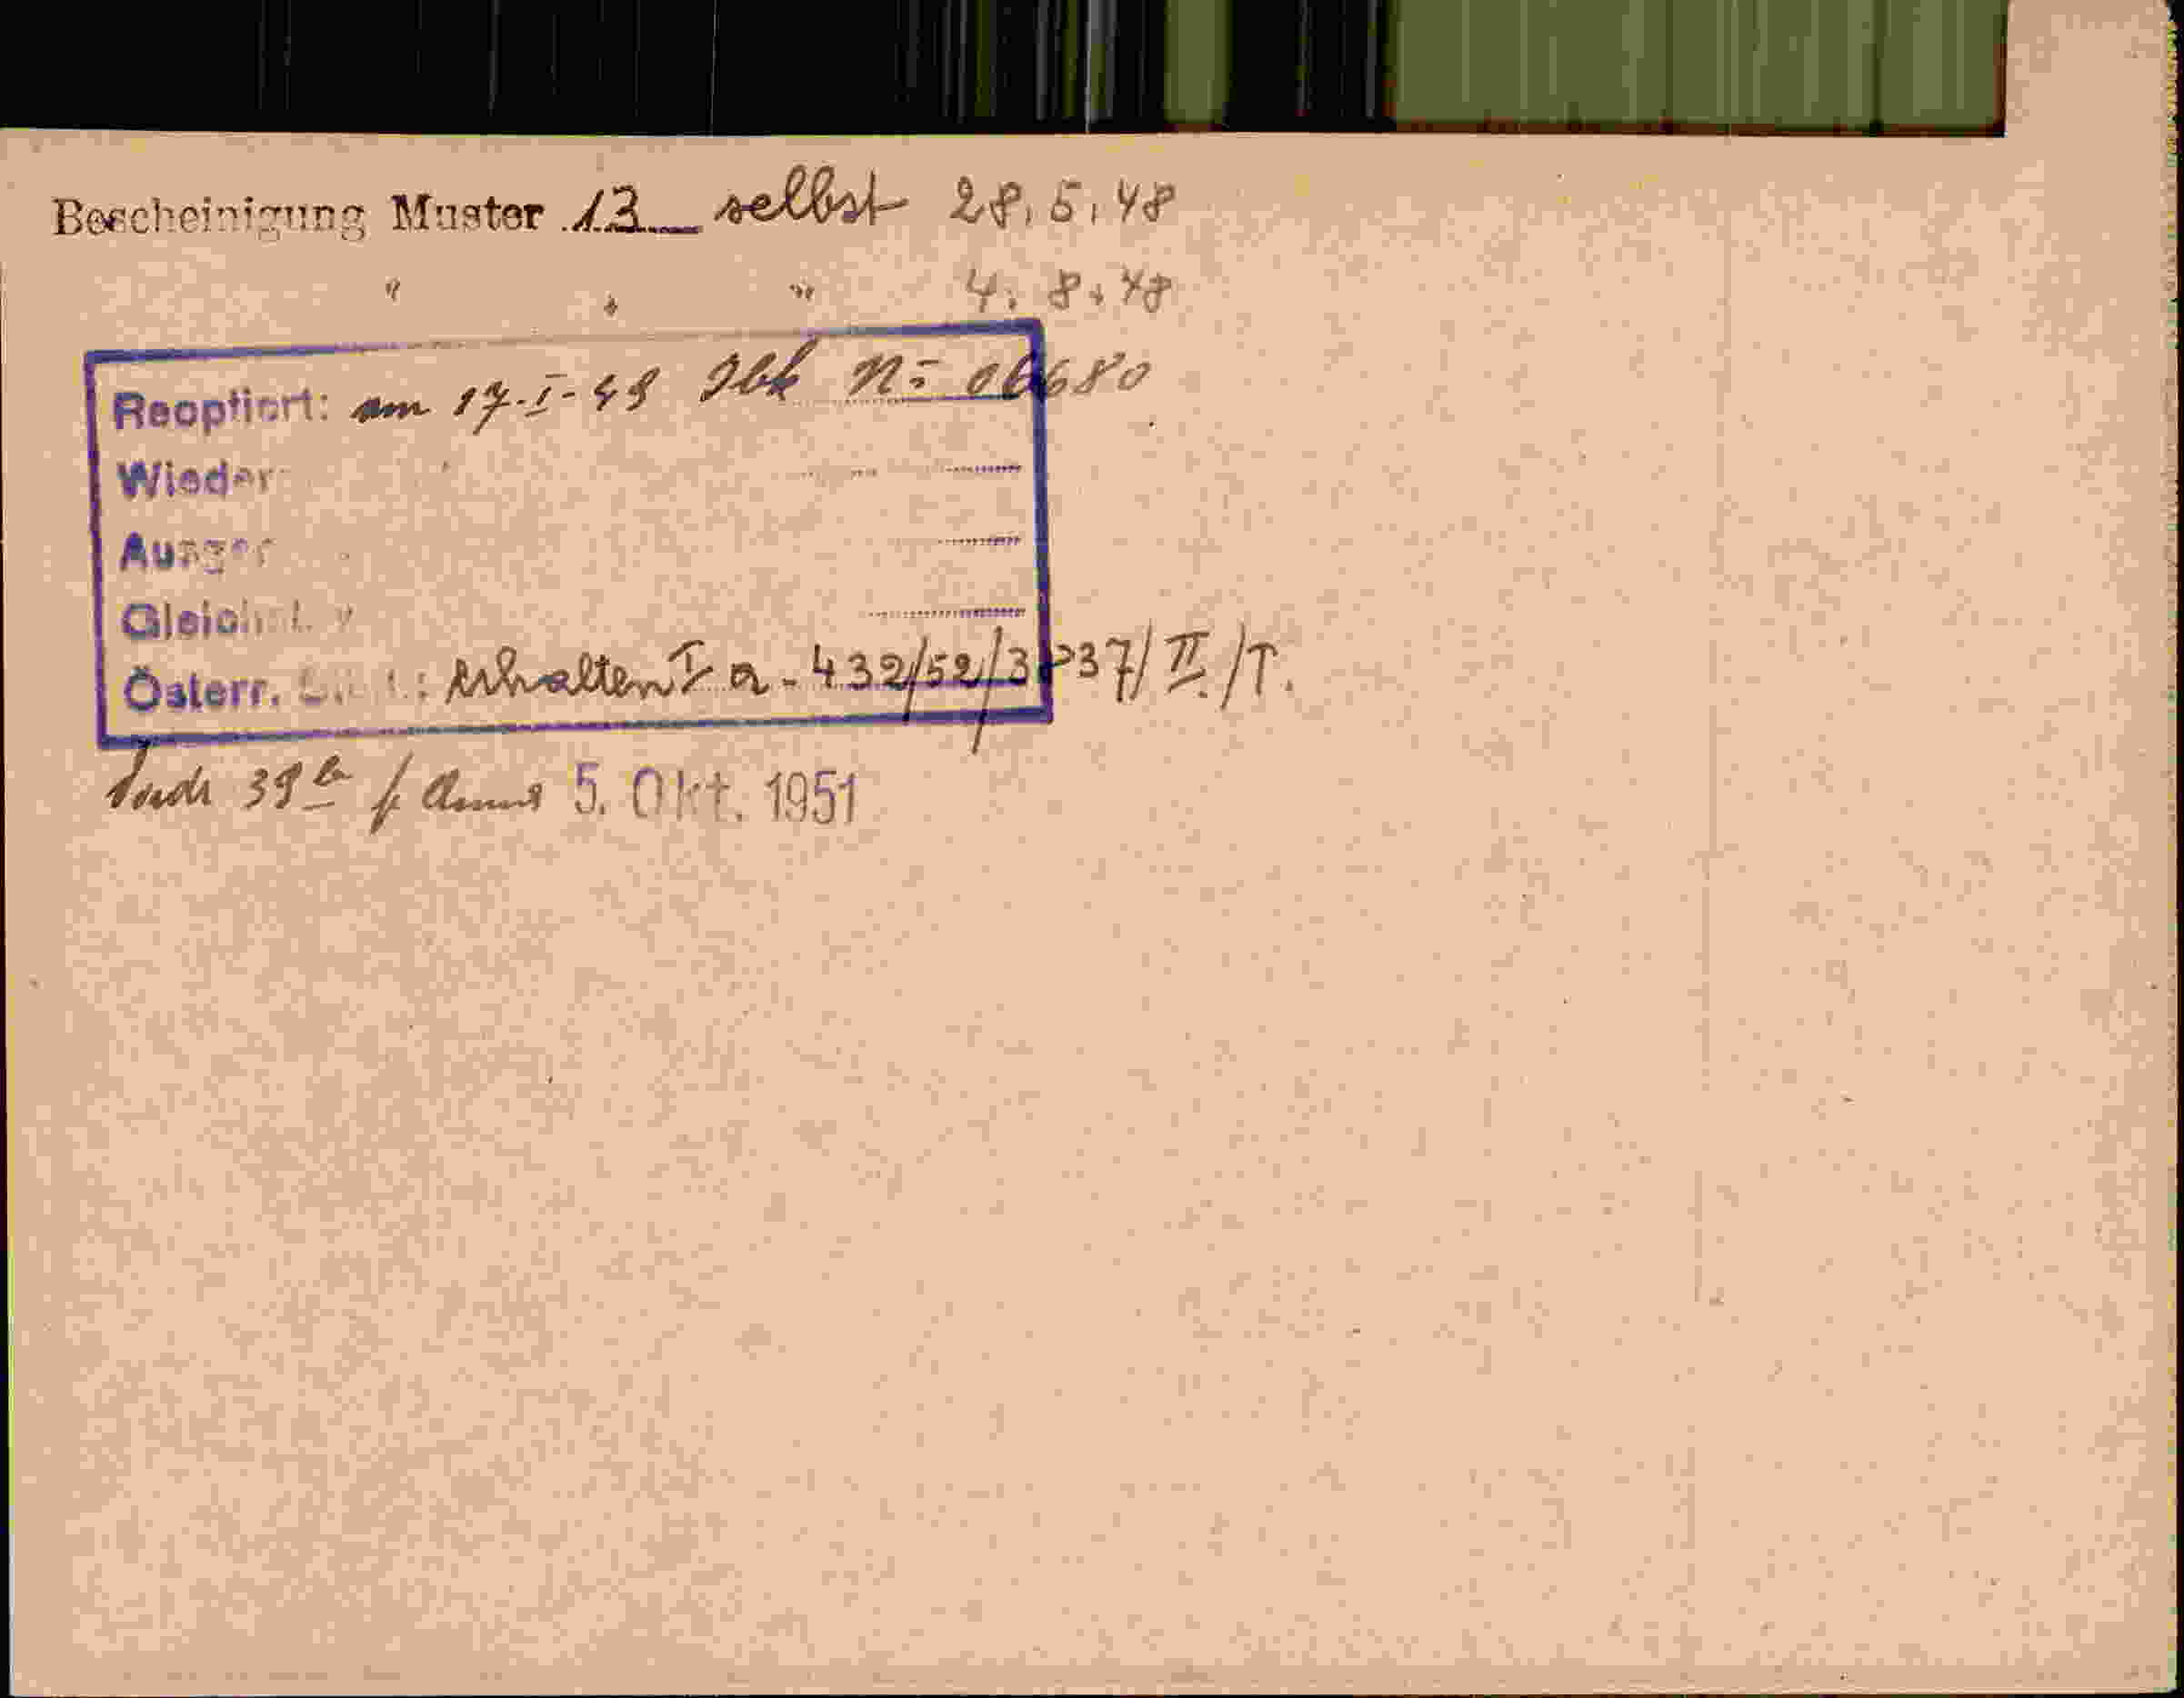 Bescheinigung Muster 13 selbst 28.5.48
" " " 4. 8. 48
Reoptiert: am 17-I-49 Ibk No 06680
Wieder
Gleich
Österr. : erhalten Ia-432/52/3 37/II./T.
39 5. Okt. 1951